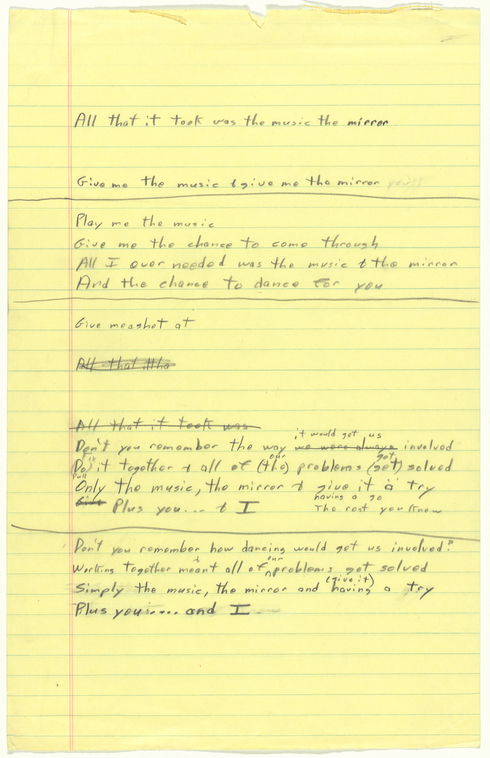 All that it took was the music the mirror
Give me the music & give me the mirror
Play me the music
Give me the chance to come through
All I ever needed was the music & the mirror
And the chance to dance for you
Give me a shot at
All that tha
All that it took was
it would get us
Don't you remember the way we were always involved
our get
Do it together & all of (the) problems (get) solved
Only the music, the mirror & give it a try
having a go
Plus you... & I The rest you know
Don't you remember how dancing would get us involved?
our
Working together meant all of problems get solved
(give it)
Simply the music, the mirror and having a try
Plus you..... and I